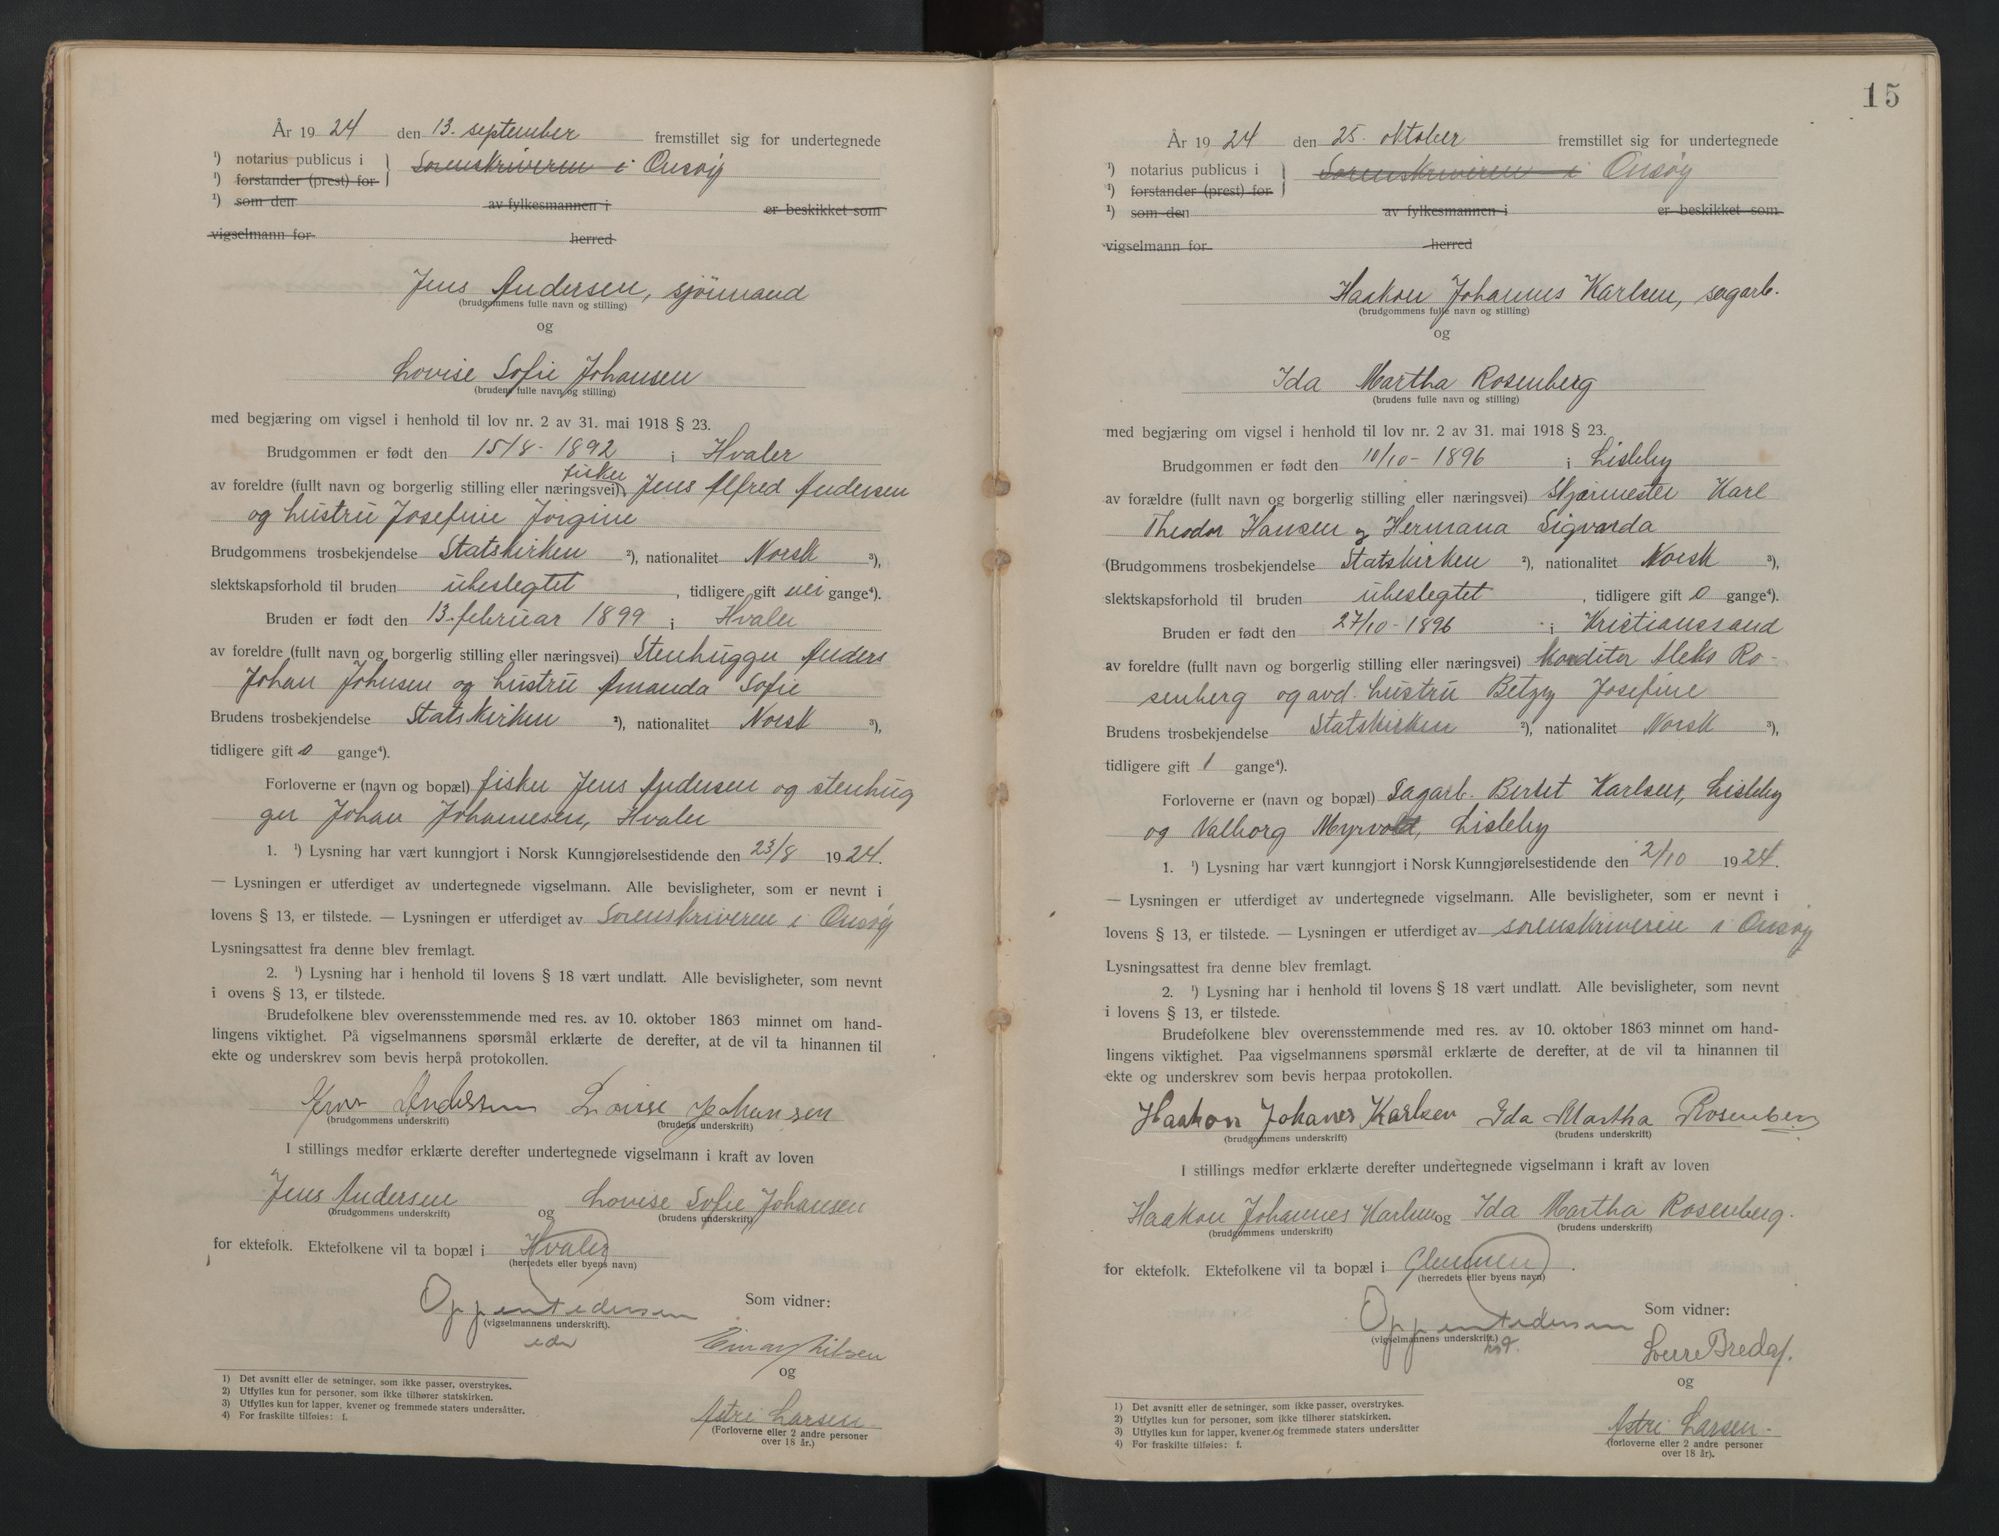 År 1924 den 13. september fremstillet sig for undertegnede
¹) notarius publicus i
¹) forstander (prest) for
Sorenskriveren i Onsøy
¹) som den av fylkesmannen i er beskikket som
vigselmann for herred
Jens Andersen, sjömand
(brudgommens fulle navn og stilling)
og
Lovise Sofie Johansen
(brudens fulle navn og stilling)
med begjæring om vigsel i henhold til lov nr. 2 av 31. mai 1918 § 23.
Brudgommen er født den 15/8-1892 i Hvaler
fisker
av foreldre (fullt navn og borgerlig stilling eller næringsvei) Jens Alfred Andersen
og hustru Josefine Jörgine
Brudgommens trosbekjendelse Statskirken ²), nationalitet Norsk ³),
slektskapsforhold til bruden ubeslegtet, tidligere gift nei gange⁴).
Bruden er født den 13. februar 1899 i Hvaler
av foreldre (fullt navn og borgerlig stilling eller næringsvei) Stenhugger Anders
Johan Johnsen og hustru Amanda Sofie
Brudens trosbekjendelse Statskirken ²), nationalitet Norsk ³),
tidligere gift 0 gange⁴).
Forloverne er (navn og bopæl) fisker Jens Andersen og stenhug
ger Johan Johannesen, Hvaler
1. ¹) Lysning har vært kunngjort i Norsk Kunngjørelsestidende den 23/8 1924.
— Lysningen er utferdiget av undertegnede vigselmann. Alle bevisligheter, som er nevnt i
lovens § 13, er tilstede. — Lysningen er utferdiget av Sorenskriveren i Onsøy
Lysningsattest fra denne blev fremlagt.
2. ¹) Lysning har i henhold til lovens § 18 vært undlatt. Alle bevisligheter, som nevnt
i ovens § 13, er tilstede.
Brudefolkene blev overensstemmende med res. av 10. oktober 1863 minnet om hand-
lingens viktighet. På vigselmannens spørsmål erklærte de derefter, at de vil ta hinannen til
ekte og underskrev som bevis herpå protokollen.
Jens Andersen Lovise Johansen
(brudgommens underskrift) (brudens underskrift)
I stillings medfør erklærte derefter undertegnede vigselmann i kraft av loven
Jens Andersen og Lovise Sofie Johansen
(brudgommens underskrift) (brudens underskrift)
for ektefolk. Ektefolkene vil ta bopæl i Hvaler
(herredets eller byens navn)
Som vidner:
(vigselmannens underskrift).
Einar Nilsen
og
Astri Larsen
(Forloverne eller 2 andre personer
over 18 år.)
1) Det avsnitt eller de setninger, som ikke passer, overstrykes.
2) Utfylles kun for personer, som ikke tilhører statskirken.
3) Utfylles kun for lapper, kvener og fremmede staters undersåtter.
4) For fraskilte tilføies: f.
15
År 1924 den 25. oktober fremstillet sig for undertegnede
¹) notarius publicus i
¹) forstander (prest) for
Sorenskriveren i Onsøy
¹) som den av fylkesmannen i er beskikket som
vigselmann for herred
Haakon Johannes Karlsen, sagarb.
(brudgommens fulle navn og stilling)
og
Ida Martha Rosenberg
(brudens fulle navn og stilling)
med begjæring om vigsel i henhold til lov nr. 2 av 31. mai 1918 § 23.
Brudgommen er født den 10/10-1896 i Lisleby
av forældre (fullt navn og borgerlig stilling eller næringsvei) Skjærmester Karl
Theodor Hansen og Hermana Sigvarda
(Brudgommens trosbekjendelse Statskirken ²), nationalitet Norsk ³),
slektskapsforhold til bruden ubeslegtet, tidligere gift 0 gange⁴).
Bruden er født den 27/10-1896 i Kristianssand
av foreldre (fullt navn og borgerlig stilling eller næringsvei) Konditor Aleks Ro-
senberg og avd. hustru Betzy Josefine
Brudens trosbekjendelse Statskirken ²), nationalitet Norsk ³),
tidligere gift 1 gange⁴).
Forloverne er (navn og bopæl) Sagarb. Berket Karlsen, Lisleby
og Valborg Myrvold, Lisleby
1. ¹) Lysning har vært kunngjort i Norsk Kunngjørelsestidende den 2/10 1924.
— Lysningen er utferdiget av undertegnede vigselmann. Alle bevisligheter, som er nevnt i
lovens § 13, er tilstede. — Lysningen er utferdiget av sorenskriveren i Onsøy
Lysningsattest fra denne blev fremlagt.
2. ¹) Lysning har i henhold til lovens § 18 vært undlatt. Alle bevisligheter, som nevnt
i lovens § 13, er tilstede.
Brudefolkene blev overensstemmende med res. av 10. oktober 1863 minnet om hand-
lingens viktighet. Paa vigselmannens spørsmål erklærte de derefter, at de vil ta hinannen til
ekte og underskrev som bevis herpaa protokollen.
Haakon Johanes Karlsen Ida Martha Rosenberg
(brudgommens underskrift) (brudens underskrift)
I stillings medfør erklærte derefter undertegnede vigselmann i kraft av loven
Haakon Johannes Karlsen og Ida Martha Rosenberg.
(brudgommens underskrift) (brudens underskrift)
for ektefolk. Ektefolkene vil ta bopæl i Glemmen.
(herredets eller byens navn)
Som vidner:
(vigselmannens underskrift.)
og
Astri Larsen
(forloverne eller 2 andre personer
over 18 år).
1) Det avsnitt eller de setninger, som ikke passer, overstrykes.
2) Utfylles kun for personer, som ikke tilhører statskirken.
3) Utfylles kun for lapper, kvener og fremmede staters undersåtter
4) For fraskilte tilføies: f.